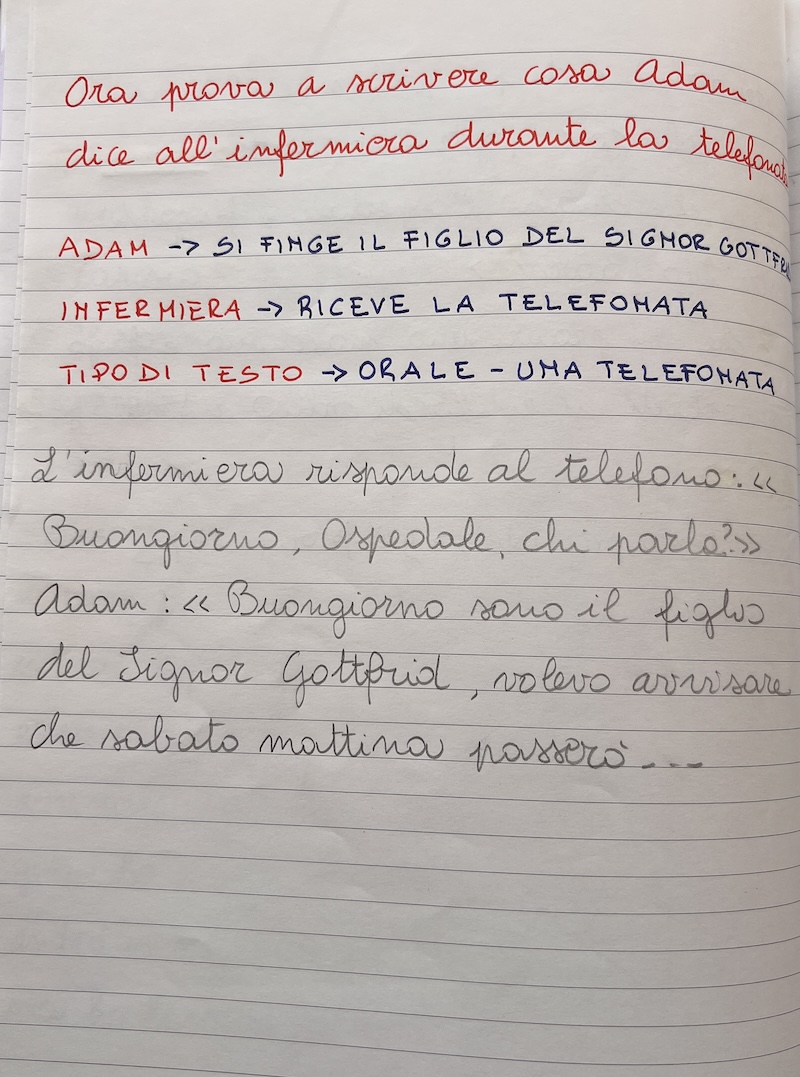 Ora prova a scrivere cosa Adam
dice all'infermiera durante la telefonata
ADAM -> SI FINGE IL FIGLIO DEL SIGNOR GOTTFR
INFERMIERA -> RICEVE LA TELEFONATA
TIPO DI TESTO -> ORALE - UNA TELEFONATA
L'infermiera risponde al telefono: «
Buongiorno, Ospedale, chi parla?»
Adam: « Buongiorno sono il figlio
del Signor Gottfrid, volevo avvisare
che sabato mattina passerò ...